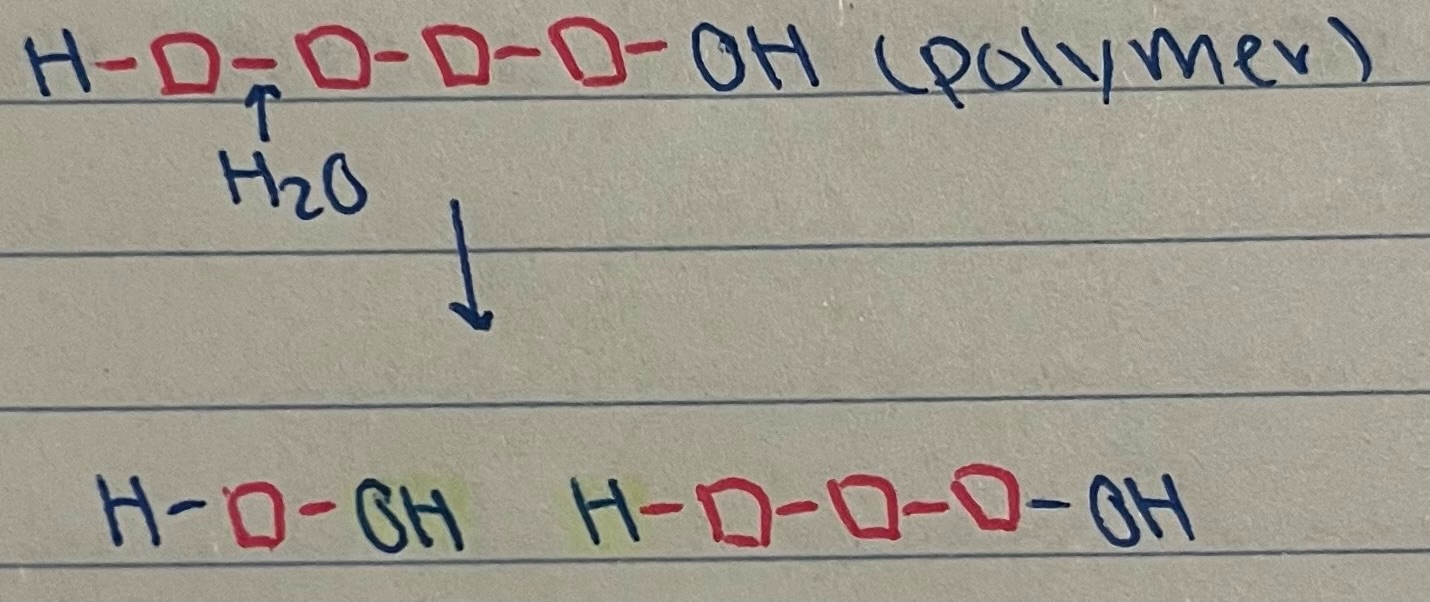 H-□-□-□-□-OH (polymer)
↑
H2O
↓
H-□-OH H-□-□-□-OH